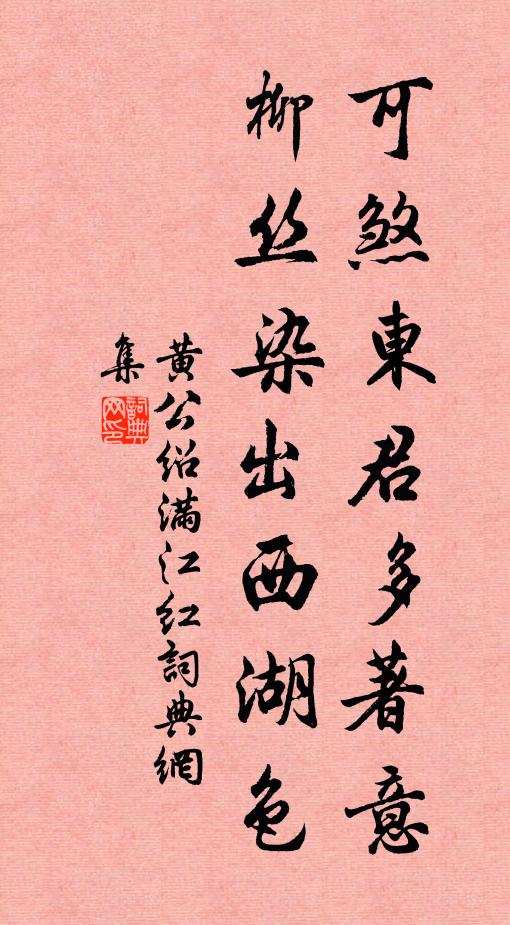 可煞東君多著意
柳丝染出西湖色
黄公绍满江红詞典網
集
詞典
网印